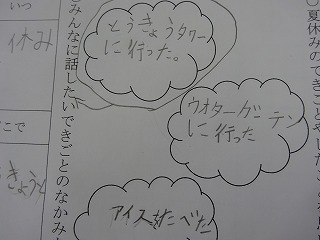 ○夏休みのできごとやしたこ
とうきょうタワー
に行った。
ウオターガーテン
に行った
アイスをたべた
みんなに話したいできごとのなかみ
いつ
休み
こで
きょう